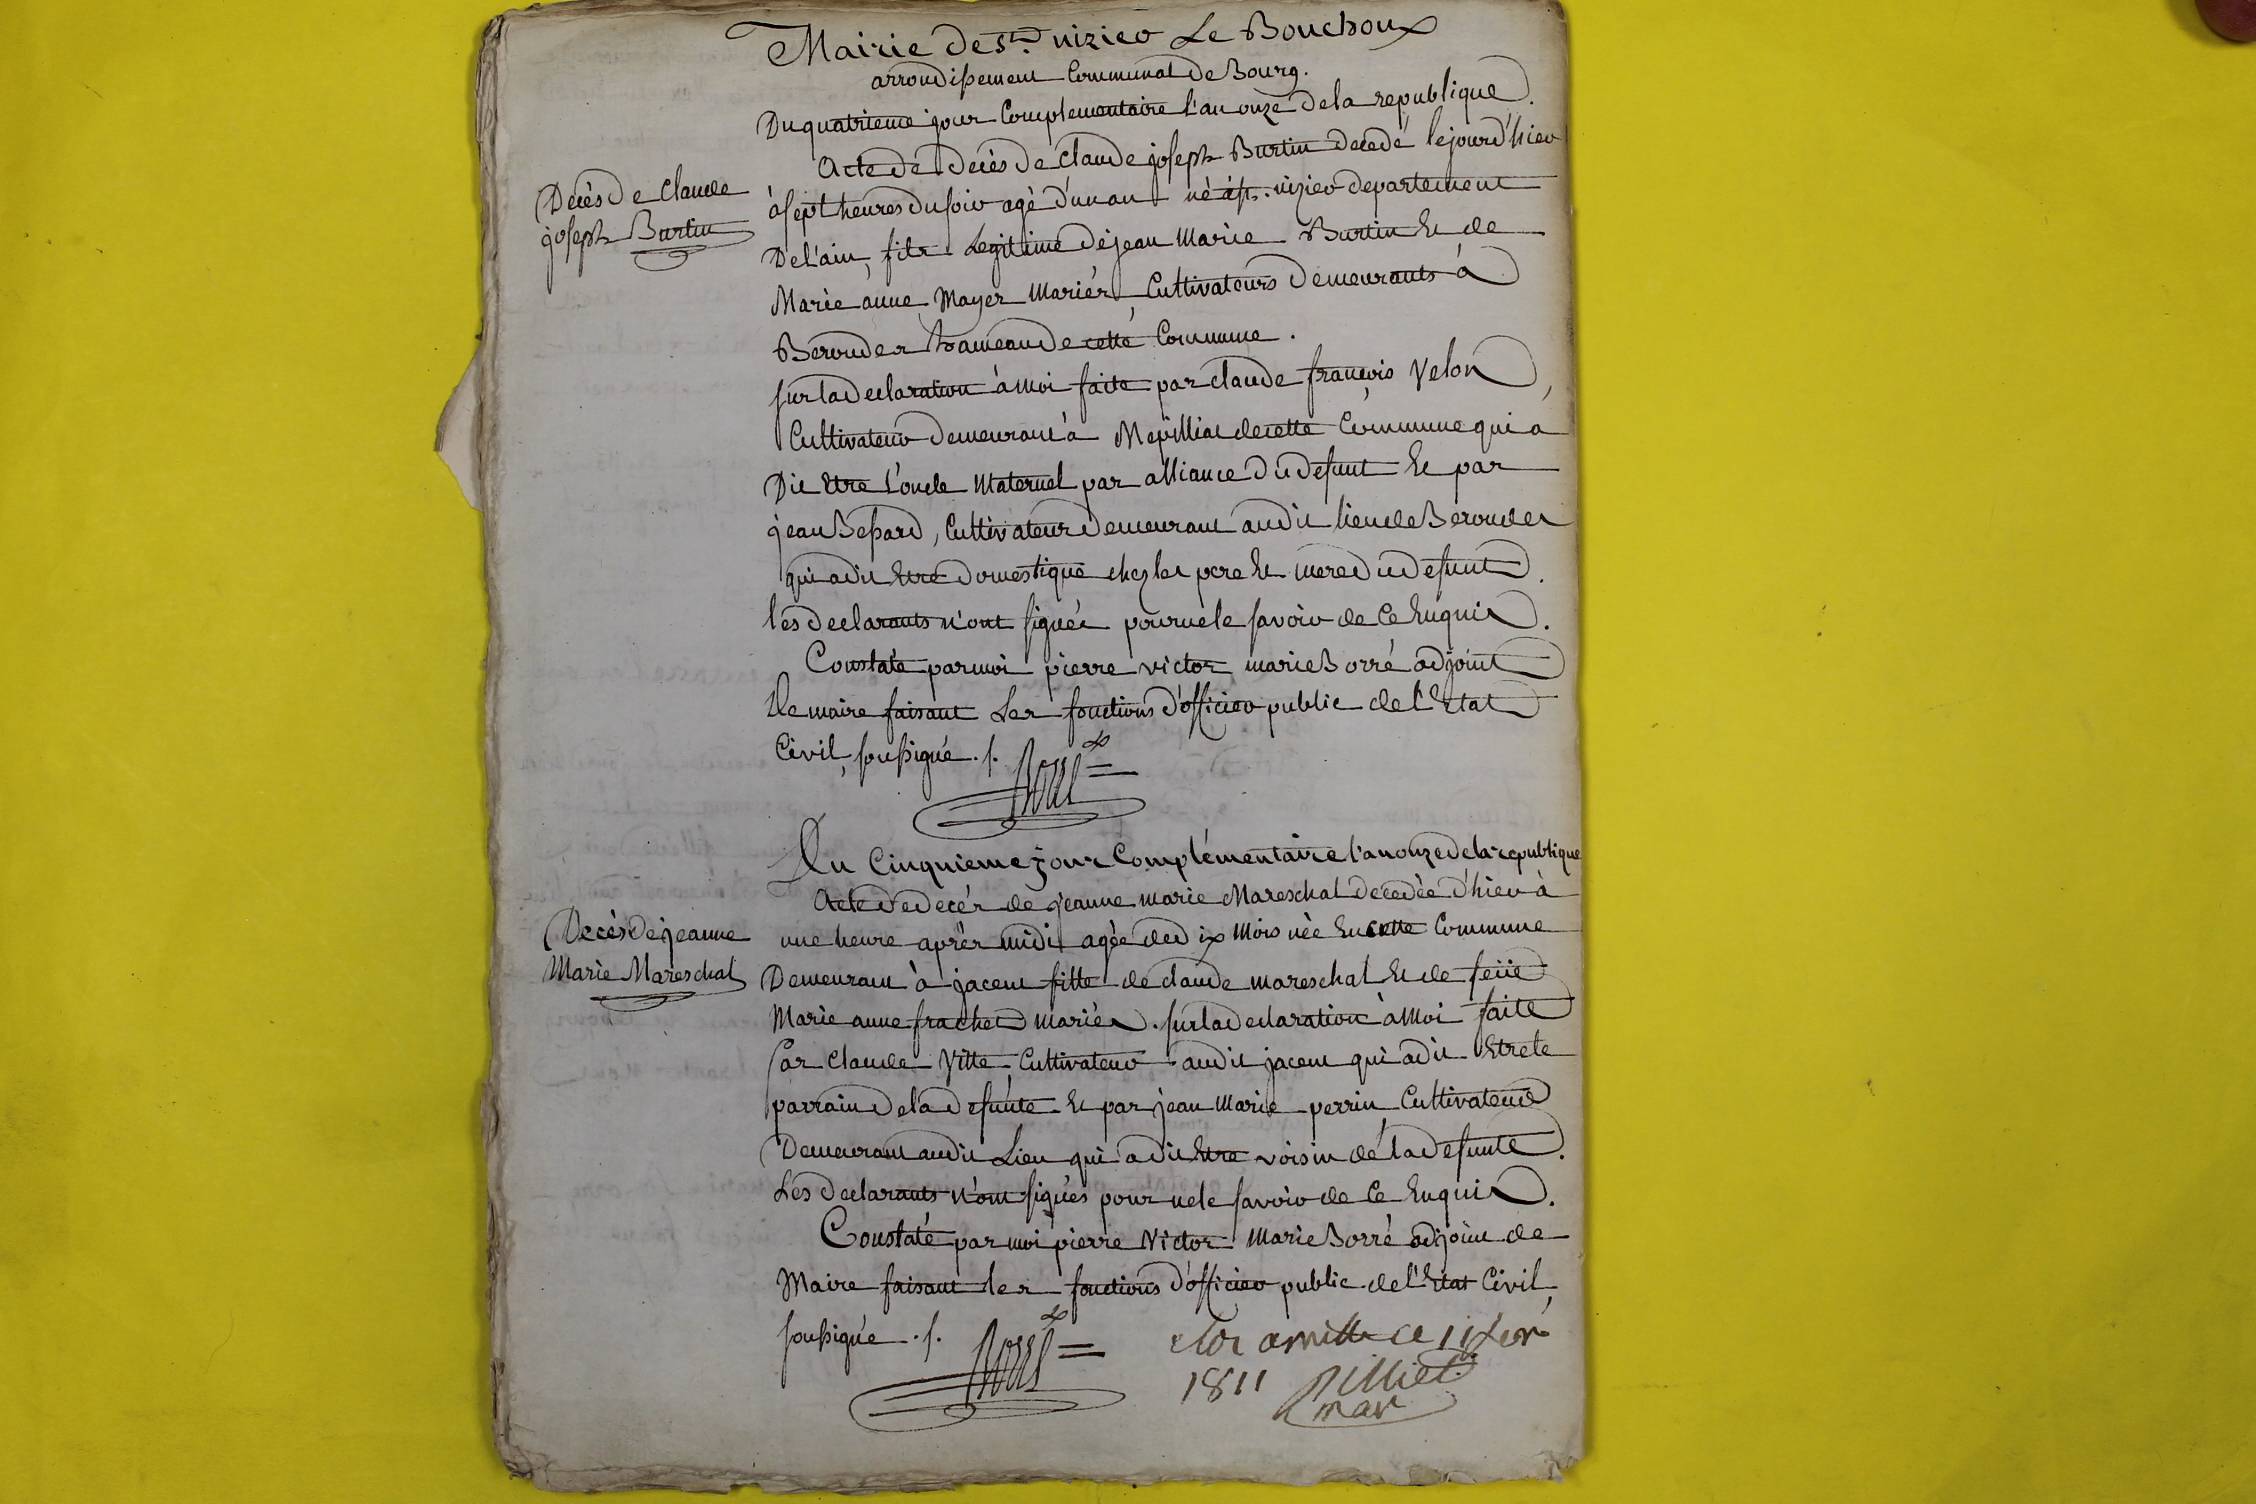 Mairie de st. nizier Le Bouchoux
arrondissement Communal de Bourg.
Du quatrieme jour Complementaire l'an onze de la republique.
Acte de decès de Claude joseph Burtin decedé le jourd'hier
à sept heures du soir agé d'un an né à st. nizier departement
De l'ain, fils Legitime de jean Marie Burtin Et de
Marie anne Mayer Mariés, Cultivateurs Demeurants à
Beroudes hameau de cette Commune.
sur la declaration à moi faite par claude françois Velon,
Cultivateur demeurant à Mepilliat de cette Commune qui a
Dit Etre L'oncle Maternel par alliance du defunt Et par
jean Bessard, Cultivateur Demeurant audit lieu de Beroudes
qui a dit Etre domestique chez les pere Et mere du defunt.
les declarants n'ont signés pour ne le savoir de Ce Enquis.
Constaté par moi pierre victor marie Borré adjoint
De maire faisant Les fonctions d'officier public de l'Etat
Civil, soussigné ./. Borré
Decès de Claude
joseph Burtin
Du Cinquieme jour Complémentaire l'an onze de la republique
Acte de decés de jeanne marie Mareschal decedée d'hier à
une heure aprés midi agée de dix Mois née En cette Commune
Demeurant à jacent fille de claude mareschal Et de feüe
Marie anne frachet mariés. sur la declaration à Moi faite
Par Claude Vitte Cultivateur audit jacent qui a dit Etre le
parrain de la defunte Et par jean Marie perrin Cultivateur
Demeurant audit Lieu qui a dit Etre voisin de la defunte.
Les declarants n'ont signés pour ne le savoir de Ce Enquis.
Constaté par moi pierre Victor Marie Borré adjoint de
Maire faisant les fonctions d'officier public de l'Etat Civil,
soussigné ./. Borré
Decès de jeanne
Marie Mareschal
Clos arrêtté ce 11
1811